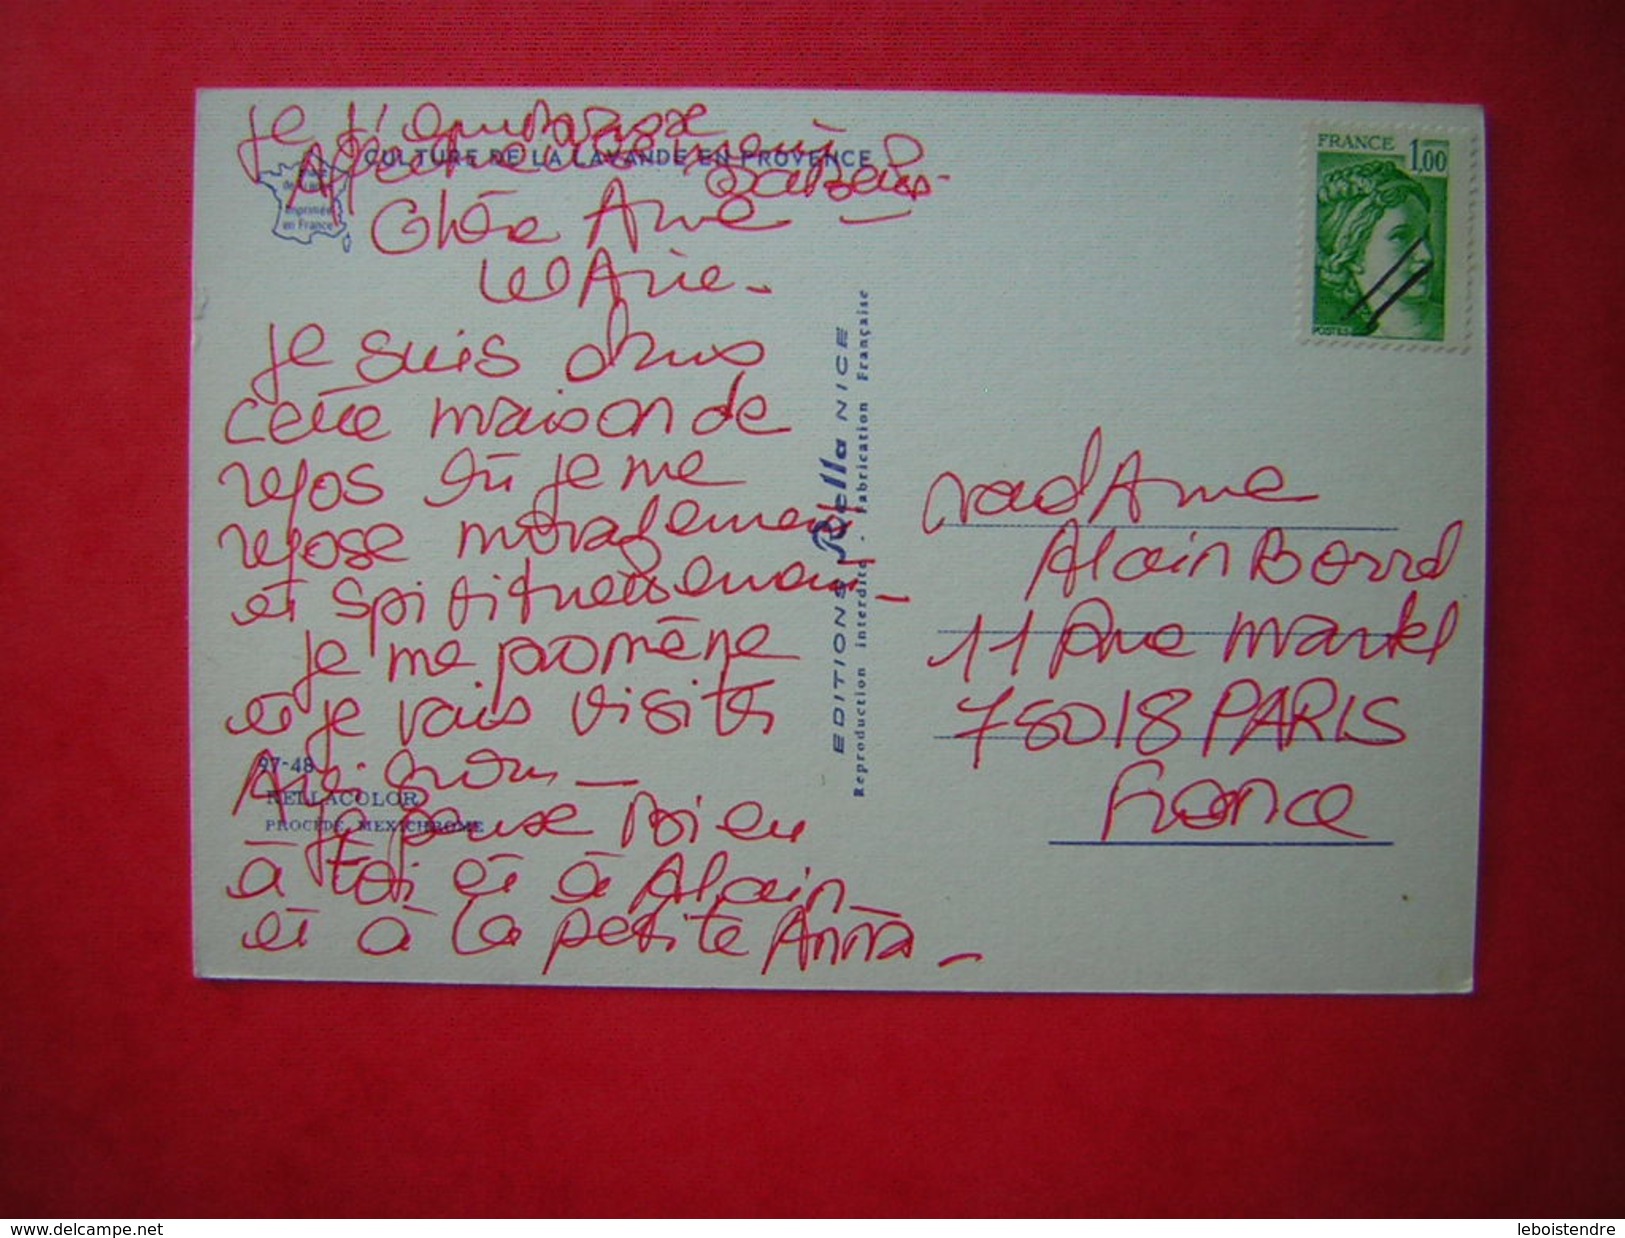 Je t'embrasse
Affectueusement
CULTURE DE LA LAVANDE EN PROVENCE
imprimée
en France
Chère Anne
Marie -
Je suis dans
cette maison de
repos où je me
repose moralement
et spirituellement -
Je me promène
et je vais visiter
Avignon -
97-48
Je pense bien
RELLACOLOR
PROCÉDÉ MEXICHROME
à toi et à Alain
et à la petite Anna -
EDITIONS Rella NICE
Reproduction interdite - Fabrication Française
FRANCE 1,00
POSTES
Madame
Alain
11 Rue
75018 PARIS
France
www.delcampe.net
leboistendre